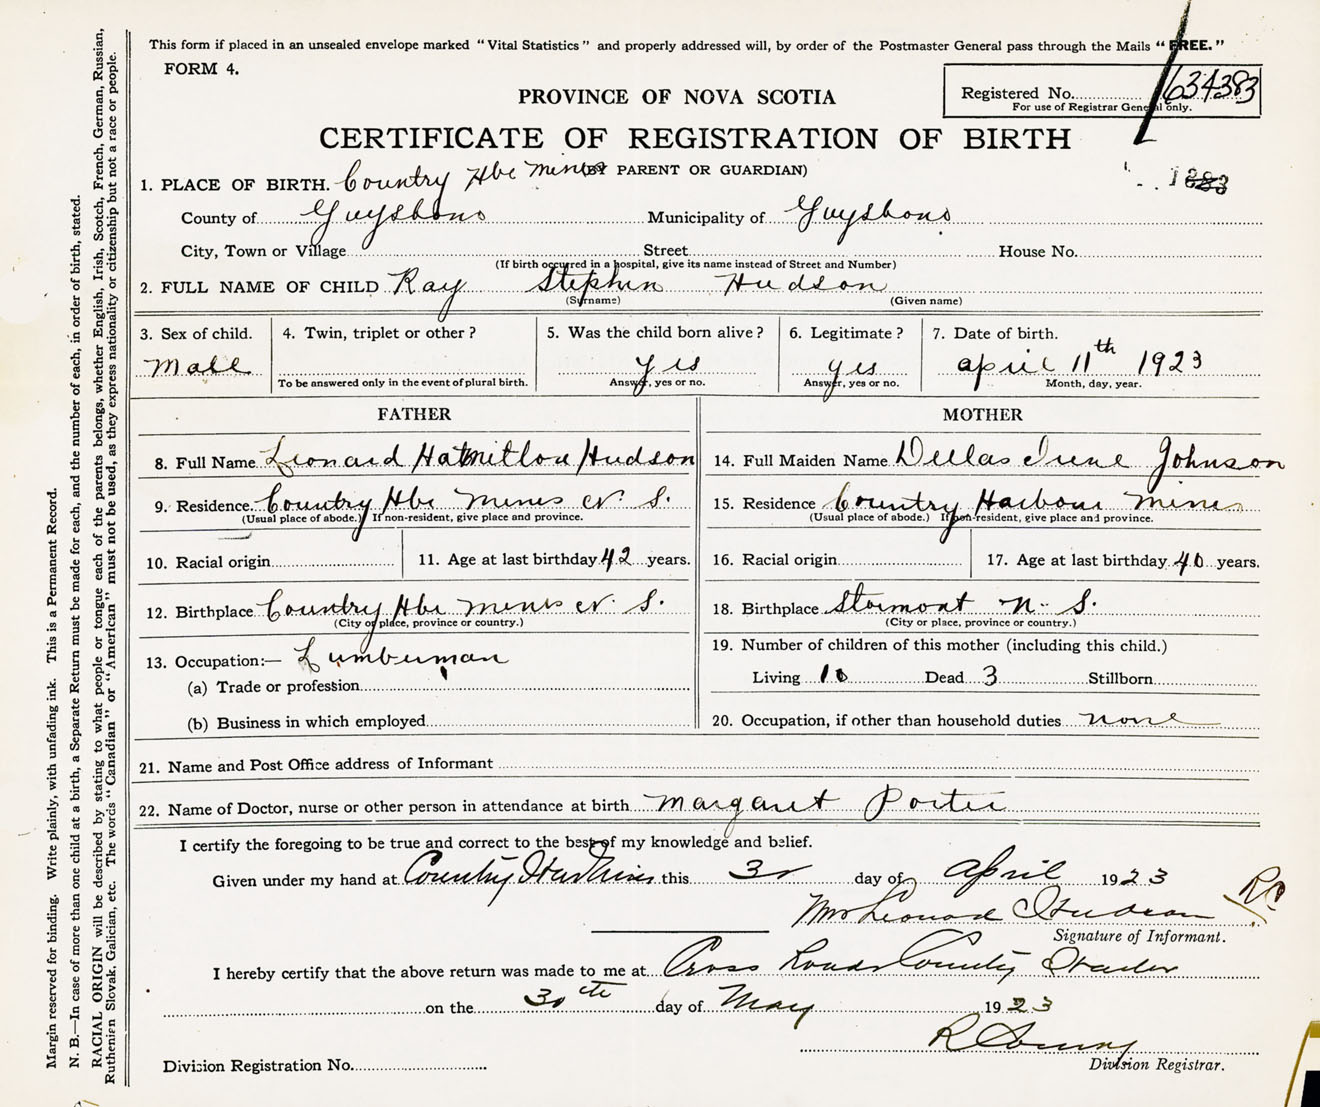 This form if placed in an unsealed envelope marked "Vital Statistics" and properly addressed will, by order of the Postmaster General pass through the Mails "FREE."
FORM 4.
Registered No. 634383
For use of Registrar General only.
PROVINCE OF NOVA SCOTIA
CERTIFICATE OF REGISTRATION OF BIRTH
(BY PARENT OR GUARDIAN)
1. PLACE OF BIRTH. Country Hbr Mines
County of Guysboro Municipality of Guysboro
City, Town or Village Street House No.
(If birth occurred in a hospital, give its name instead of Street and Number)
2. FULL NAME OF CHILD Ray Stephen Hudson
(Surname) (Given name)
3. Sex of child. 4. Twin, triplet or other? 5. Was the child born alive? 6. Legitimate? 7. Date of birth.
Male yes yes april 11th 1923
To be answered only in the event of plural birth. Answer, yes or no. Answer, yes or no. Month, day, year.
FATHER
8. Full Name Leonard Hudson
9. Residence. Country Hbr Mines N. S.
(Usual place of abode.) If non-resident, give place and province.
10. Racial origin 11. Age at last birthday 42 years.
12. Birthplace Country Hbr Mines N. S.
(City or place, province or country.)
13. Occupation:— Lumberman
(a) Trade or profession
(b) Business in which employed
MOTHER
14. Full Maiden Name Dellas Irene Johnson
15. Residence Country Harbour Mines
(Usual place of abode.) If non-resident, give place and province.
16. Racial origin 17. Age at last birthday 40 years.
18. Birthplace Stormont N. S.
(City or place, province or country.)
19. Number of children of this mother (including this child.)
Living 10 Dead 3 Stillborn
20. Occupation, if other than household duties none
21. Name and Post Office address of Informant
22. Name of Doctor, nurse or other person in attendance at birth Margaret Porter
I certify the foregoing to be true and correct to the best of my knowledge and belief.
Given under my hand at Country Har Mines this 30 day of April 1923
Mrs Leonard Hudson
Signature of Informant.
I hereby certify that the above return was made to me at Cross Roads Country Harbor
on the 30th day of May 1923
Division Registrar.
Division Registration No.
Margin reserved for binding. Write plainly, with unfading ink. This is a Permanent Record.
N. B.—In case of more than one child at a birth, a Separate Return must be made for each, and the number of each, in order of birth, stated.
RACIAL ORIGIN will be described by stating to what people or tongue each of the parents belongs, whether English, Irish, Scotch, French, German, Russian,
Ruthenian Slovak, Galician, etc. The words "Canadian" or "American" must not be used, as they express nationality or citizenship but not a race or people.